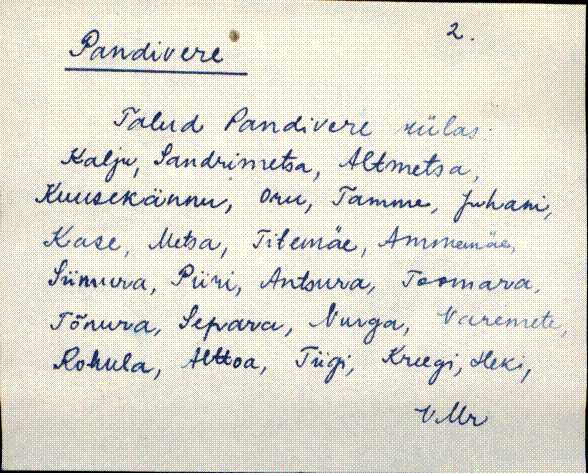 2.
Pandivere
Talud Pandivere külas.
Kalju, Sandrimetsa, Altmetsa,
Kuusekännu, Oru, Tamme, Juhani,
Kase, Metsa, Titemäe, Ammemäe,
Siimura, Piiri, Antsura, Toomara,
Tõnura, Separa, Nurga, Varemete,
Rohula, Alttoa, Tiigi, Kreegi, Heki,
VMr